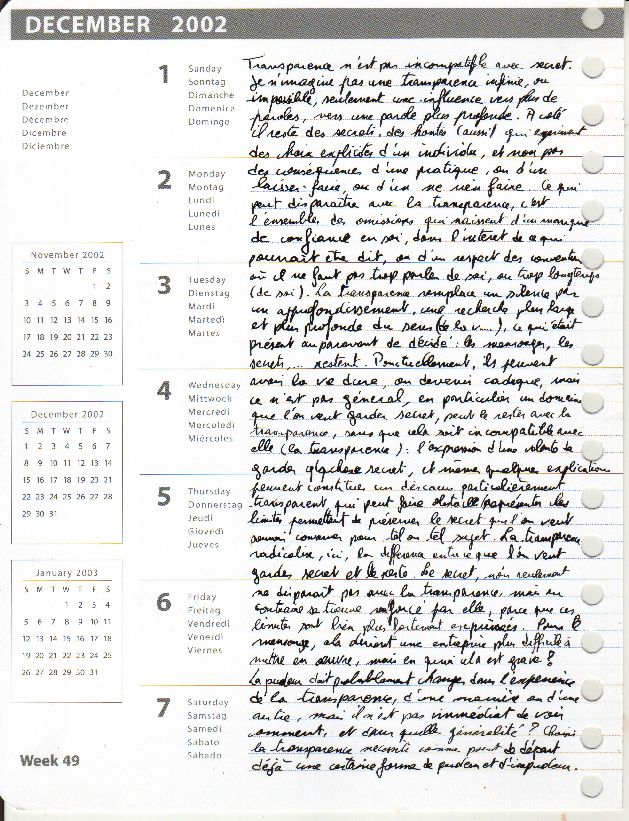 DECEMBER 2002
December
Dezember
Décembre
Dicembre
Diciembre
November 2002
S M T W T F S
1 2
3 4 5 6 7 8 9
10 11 12 13 14 15 16
17 18 19 20 21 22 23
24 25 26 27 28 29 30
December 2002
S M T W T F S
1 2 3 4 5 6 7
8 9 10 11 12 13 14
15 16 17 18 19 20 21
22 23 24 25 26 27 28
29 30 31
January 2003
S M T W T F S
1 2 3 4
5 6 7 8 9 10 11
12 13 14 15 16 17 18
19 20 21 22 23 24 25
26 27 28 29 30 31
Week 49
1 Sunday
Sonntag
Dimanche
Domenica
Domingo
2 Monday
Montag
Lundi
Lunedi
Lunes
3 Tuesday
Dienstag
Mardi
Martedì
Martes
4 Wednesday
Mittwoch
Mercredi
Mercoledi
Miércoles
5 Thursday
Donnerstag
Jeudi
Giovedì
Jueves
6 Friday
Freitag
Vendredi
Venerdì
Viernes
7 Saturday
Samstag
Samedi
Sabato
Sábado
Transparence n'est pas incompatible avec secret.
Je n'imagine pas une transparence infinie, ou
impossible, seulement une influence vers plus de
paroles, vers une parole plus profonde. A coté
il reste des secrets, des hontes (aussi) qui expriment
des choix explicites d'un individu, et non pas
des conséquences d'une pratique, ou d'un
laisser-faire, ou d'un ne rien faire. Ce qui
peut disparaître avec la transparence, c'est
l'ensemble, des omissions qui naissent d'un manque
de confiance en soi, dans l'intérêt de ce qui
pourrait être dit, ou d'un respect des
où il ne faut pas trop parler de soi, ou trop longtemps
(de soi). La transparence remplace un silence par
un approfondissement, une recherche plus large
et plus profonde du sens (de la v....), ce qui était
présent auparavant de décidé : les mensonges, les
secrets,... restent. Ponctuellement, ils peuvent
avoir la vie dure, ou devenir caduque, mais
ce n'est pas général, en particulier un domaine
que l'on veut garder secret, peut le rester avec la
transparence, sans que cela soit incompatible avec
elle (la transparence) : l'expression d'une volonté de
garder qlqchose secret, et même quelques explications
peuvent constituer un discours particulièrement
transparent, qui peut faire obstacle/représenter les
limites permettant de préserver le secret que l'on veut
conserver pour tel ou tel sujet. La transparence
radicalise, ici, la différence entre ce que l'on veut
garder secret et le reste. Le secret, non seulement
ne disparait pas avec la transparence, mais au
contraire se trouve renforcé par elle, parce que ces
limites sont bien plus fortement exprimées. Pour le
mensonge, cela devient une entreprise plus difficile à
mettre en oeuvre, mais en quoi cela est grave ?
La pudeur doit probablement changer, dans l'expérience
de la transparence, d'une manière ou d'une
autre, mais il n'est pas immédiat de voir
comment, et dans quelle généralité ?
la transparence nécessite comme point de départ
déjà une certaine forme de pudeur et d'impudeur.